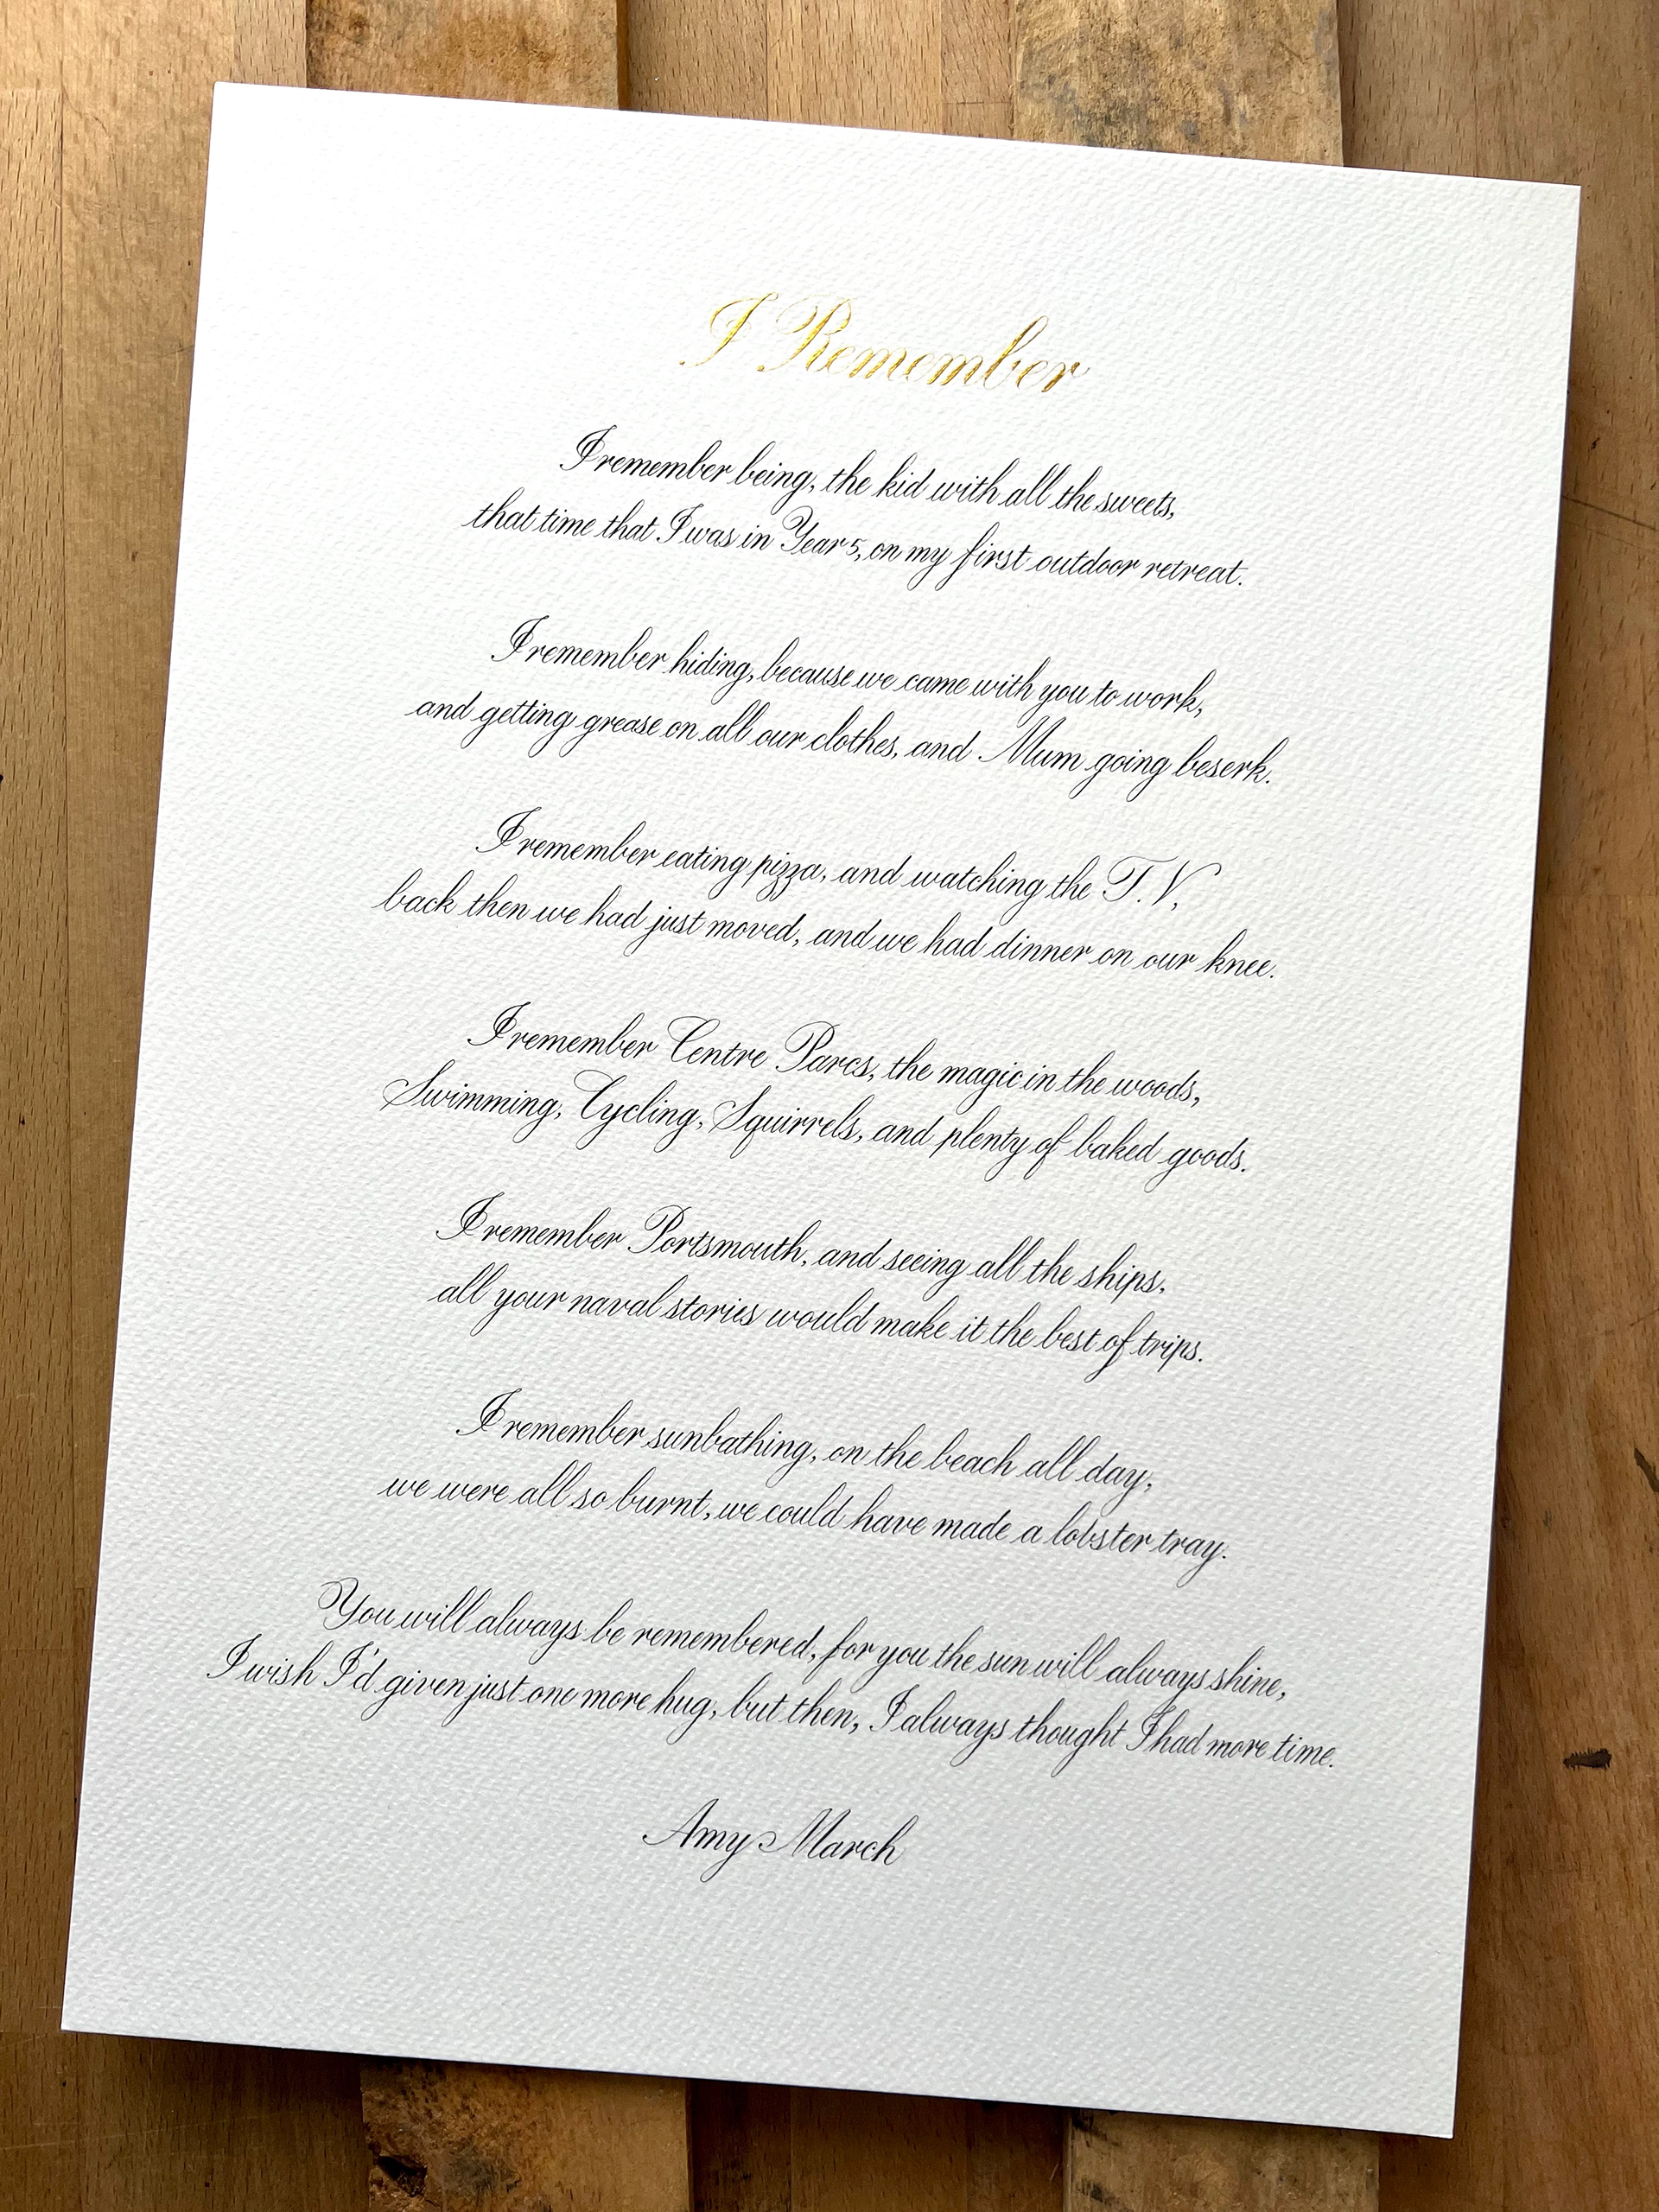 I Remember
I remember being, the kid with all the sweets,
that time that I was in Year 5, on my first outdoor retreat.
I remember hiding, because we came with you to work,
and getting grease on all our clothes, and Mum going beserk.
I remember eating pizza, and watching the T.V,
back then we had just moved, and we had dinner on our knee.
I remember Centre Parcs, the magic in the woods,
Swimming, Cycling, Squirrels, and plenty of baked goods.
I remember Portsmouth, and seeing all the ships,
all your naval stories would make it the best of trips.
I remember sunbathing, on the beach all day,
we were all so burnt, we could have made a lobster tray.
You will always be remembered, for you the sun will always shine,
I wish I'd given just one more hug, but then, I always thought I had more time.
Amy March